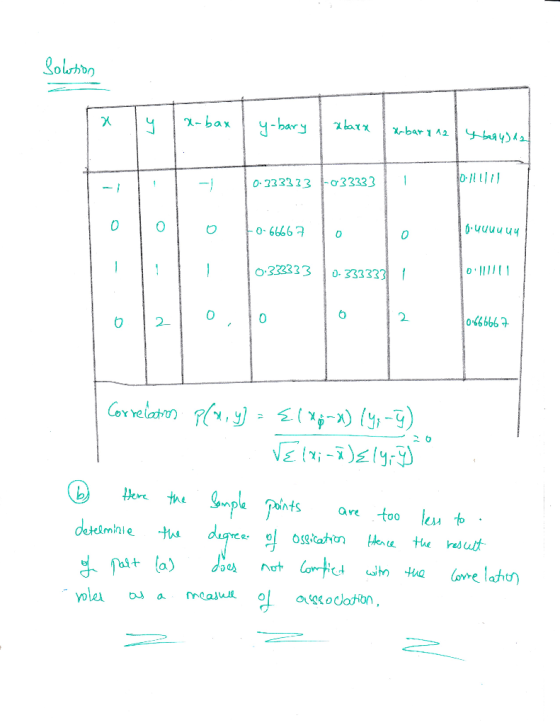 Solution
x y x-bax y-bary xbarx x-barx^2 y-bary)^2
-1 1 -1 0.333333 -0.33333 1 0.111111
0 0 0 -0.66667 0 0 0.444444
1 1 1 0.333333 0.333333 1 0.111111
0 2 0, 0 0 2 0.666667
Correlation P(x,y) = Σ(xi-x)(yi-ȳ) / √Σ(xi-x̄)Σ(yi-ȳ) = 0
(b) Here the Sample points are too less to.
determinie the degree of ossication Hence the result
of part (a) does not comflict with the correlation
roles as a measure of association.